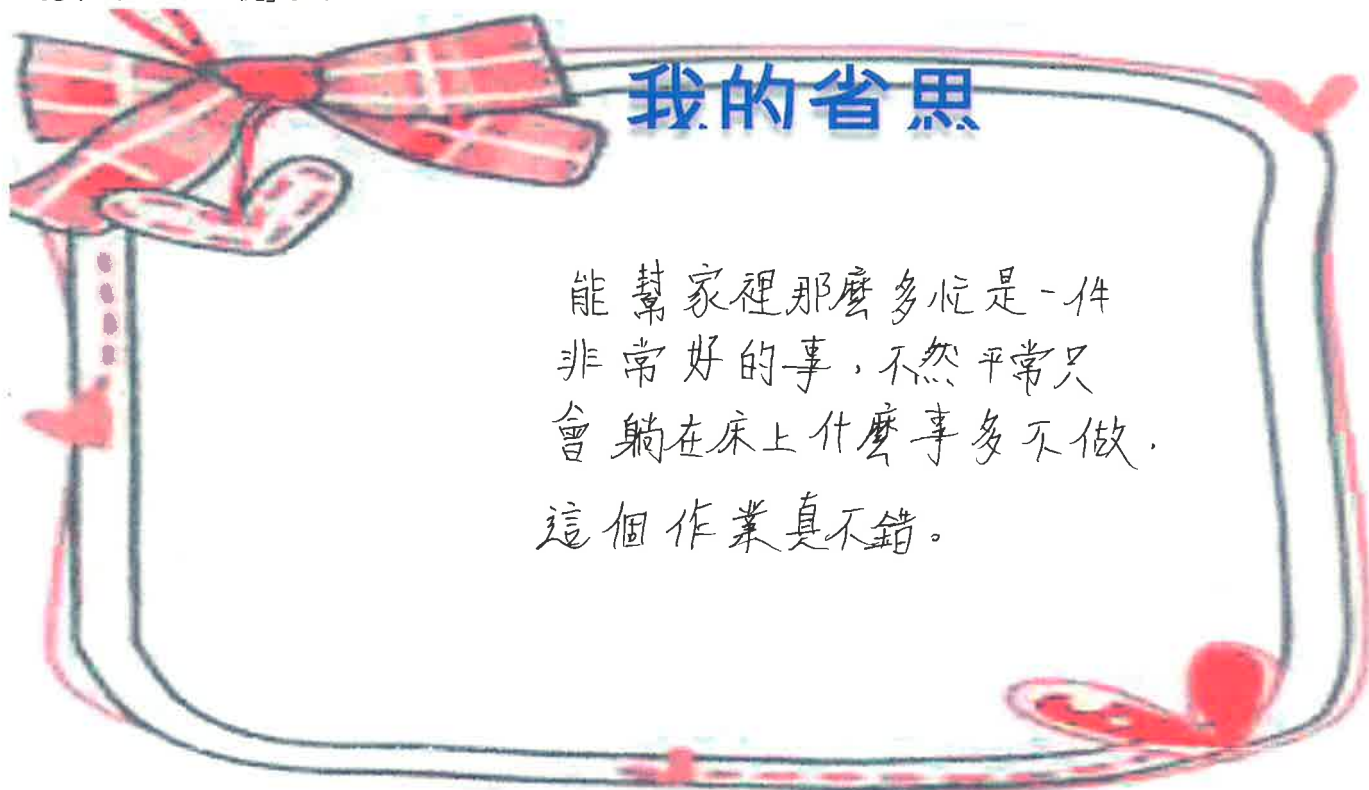 我的省思
能幫家裡那麼多忙是一件
非常好的事，不然平常只
會躺在床上什麼事多不做．
這個作業真不錯。